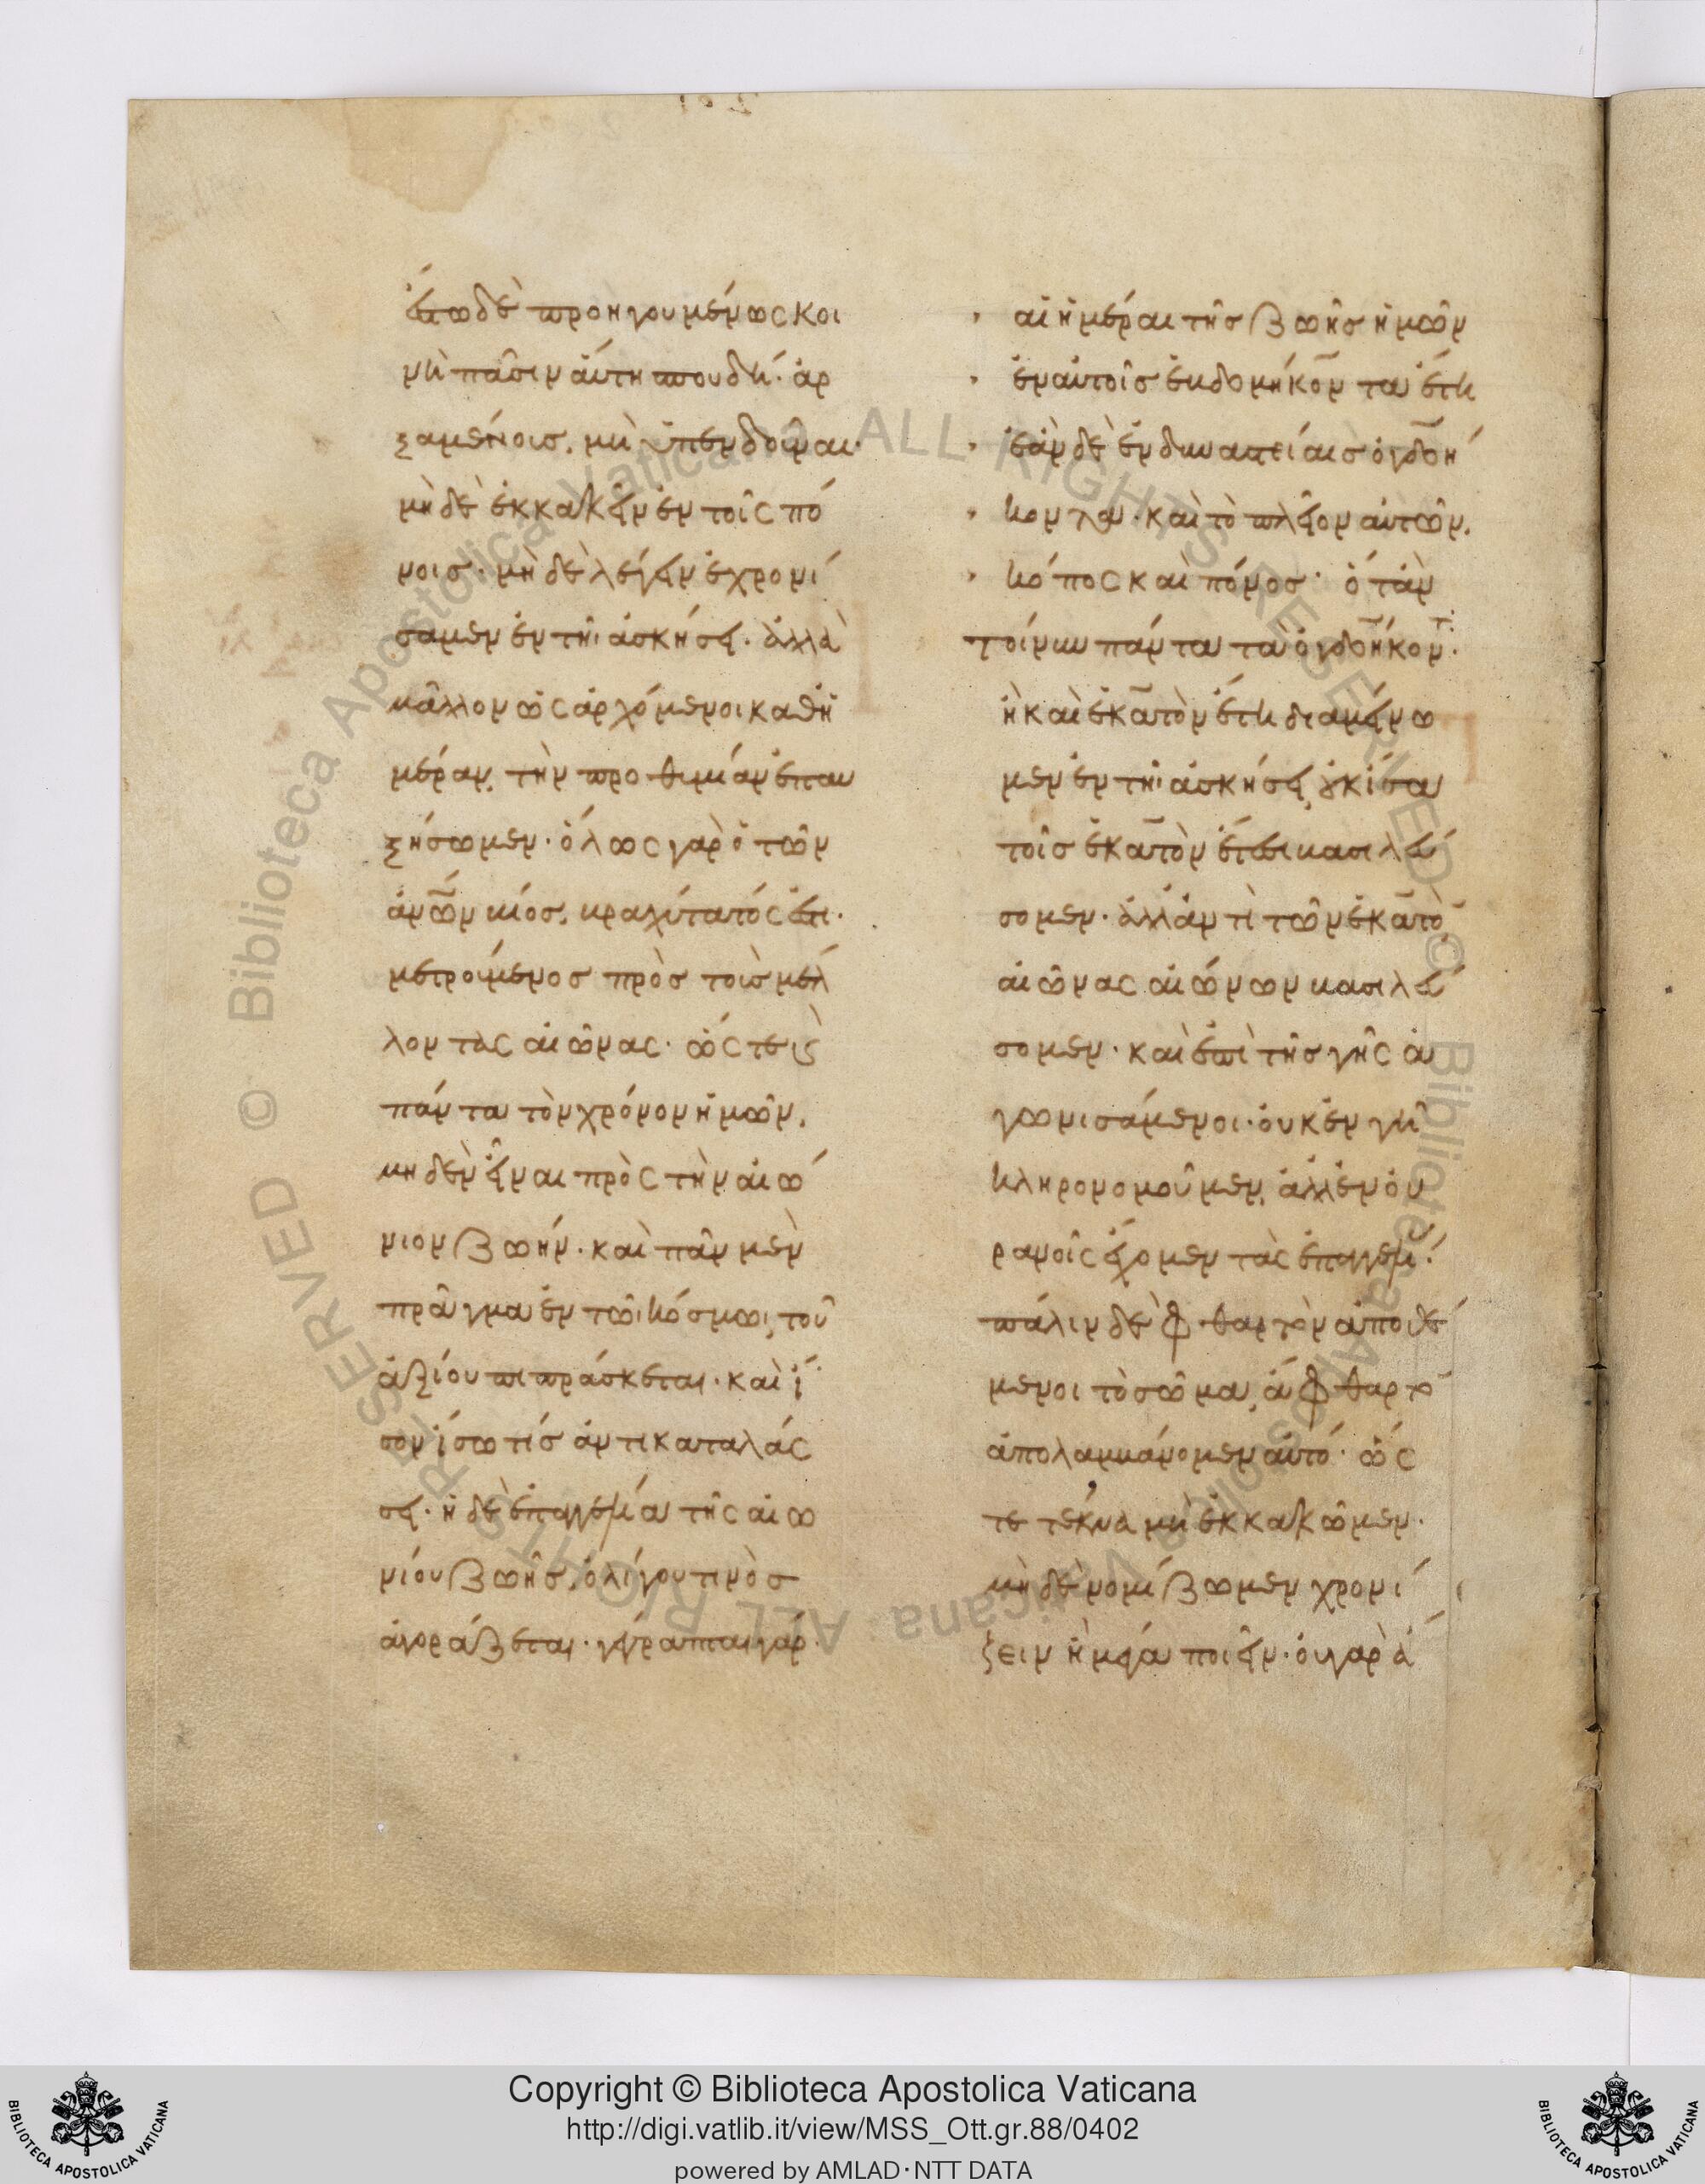 ἔστω δὲ προηγουμένως κοι
νὴ πᾶσιν αὕτη σπουδή· ἀρ
ξαμένοις, μὴ ὑπενδοῦναι·
μὴ δὲ ἐκκακεῖν ἐν τοῖς πό
νοις· μὴ δὲ λέγειν ἐχρονί
σαμεν ἐν τῆι ἀσκήσει· ἀλλὰ
μᾶλλον ὡς ἀρχόμενοι καθη
μέραν, τὴν προθυμίαν ἐπαυ
ξήσωμεν· ὅλως γὰρ ὁ τῶν
ἀνων βίος, βραχύτατός ἐστι·
μετρούμενος πρὸς τοὺς μέλ
λοντας αἰῶνας· ὥς τε κ
πάντα τὸν χρόνον ἡμῶν,
μηδὲν εἶναι πρὸς τὴν αἰώ
νιον ζωήν· καὶ πᾶν μὲν
πρᾶγμα ἐν τῶι κόσμωι, τοῦ
ἀξίου πιπράσκεται· καὶ ἴ
σον ἴσω τίς ἀντικαταλάς
σει· ἡ δὲ ἐπαγγελία τῆς αἰω
νίου ζωῆς, ὀλίγου τινὸς
ἀγοράζεται· γέγραπται γάρ·
αἱ ἡμέραι τῆς ζωῆς ἡμῶν
ἐν αὐτοῖς ἑβδομήκοντα ἔτη
ἐὰν δὲ ἐν δυναστείαις ὀγδοή
κοντα· καὶ τὸ πλεῖον αὐτῶν,
κόπος καὶ πόνος· ὅταν
τοίνυν πάντα τὰ ὀγδοήκοντ·
ἢ καὶ ἑκατὸν ἔτη διαμείνω
μεν ἐν τῆι ἀσκήσει, οὐκ ἴσα
τοῖς ἑκατὸν ἔτεσι βασιλεύ
σομεν· ἀλλ' ἀντὶ τῶν ἑκατὸ
αἰῶνας αἰώνων βασιλεύ
σομεν· καὶ ἐπὶ τῆς γῆς ἀ
γωνισάμενοι· οὐκ ἐν γῆ
κληρονομοῦμεν, ἀλλ' ἐν οὐ
ρανοῖς ἔχομεν τὰς ἐπαγγελί·
πάλιν δὲ φθαρτὸν ἀποθέ
μενοι τὸ σῶμα, ἄφθαρτο
ἀπολαμβάνομεν αὐτό· ὥς
τε τέκνα μὴ ἐκκακῶμεν·
μὴ δὲ νομίζωμεν χρονί
ζειν ἢ μέγα ποιεῖν· οὐ γὰρ ἄ
Copyright © Biblioteca Apostolica Vaticana
http://digi.vatlib.it/view/MSS_Ott.gr.88/0402
powered by AMLAD·NTT DATA
BIBLIOTECA APOSTOLICA VATICANA
BIBLIOTECA APOSTOLICA VATICANA